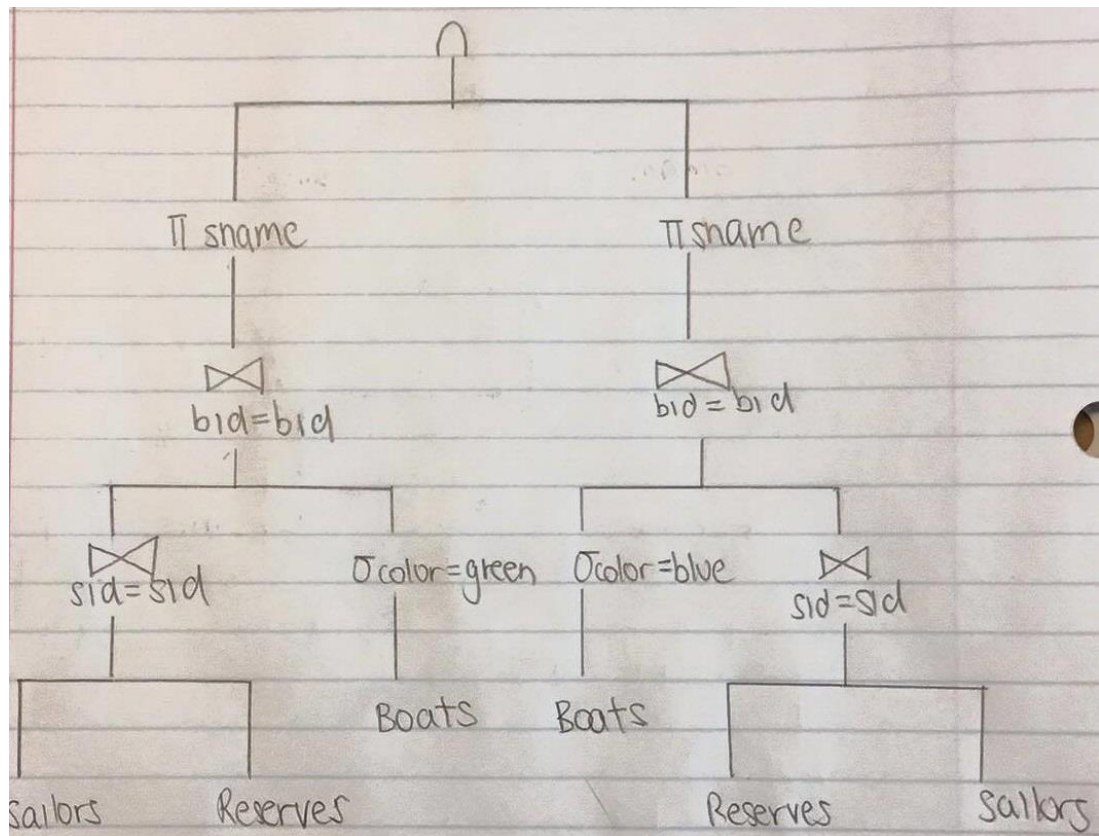 ∩
π sname π sname
⋈ ⋈
bid=bid bid=bid
⋈ σcolor=green σcolor=blue ⋈
sid=sid sid=sid
Boats Boats
Sailors Reserves Reserves Sailors